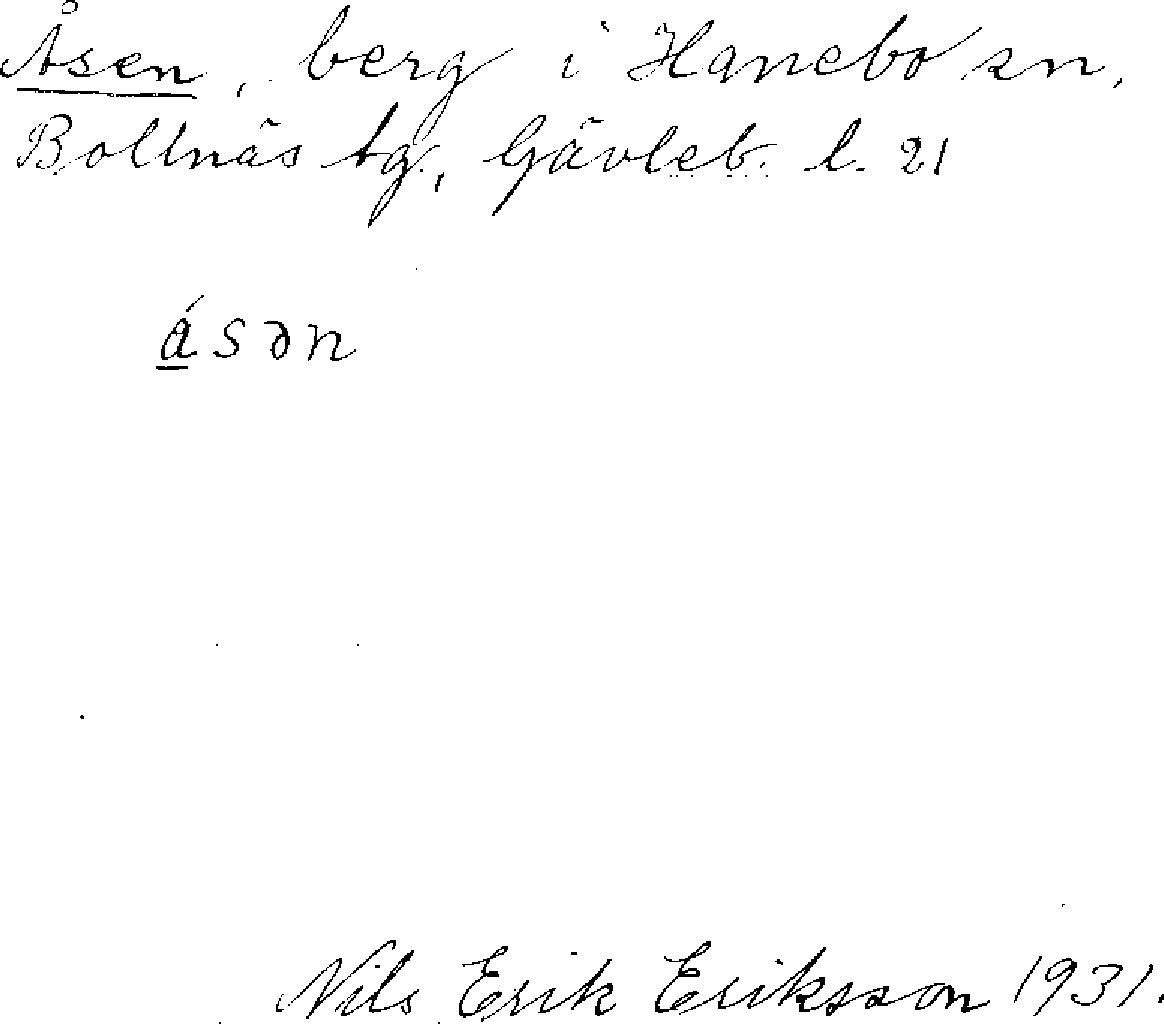 Åsen, berg i Hanebo sn,
Bollnäs tg, Gävleb. l. 21
á̱sən
Nils Erik Eriksson 1931.